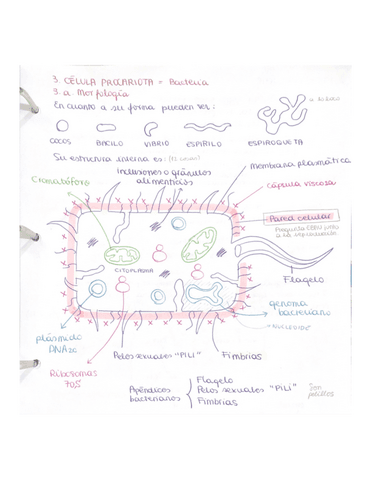 3. CÉLULA PROCARIOTA = Bacteria
3.a. Morfología
En cuanto a su forma pueden ser:
COCOS BACILO VIBRIO ESPIRILO ESPIROQUETA
Su estructura interna es:
Inclusiones o gránulos
alimenticios
membrana plasmática
Cromatóforo
cápsula viscosa
Pared celular
CITOPLASMA
Flagelo
genoma
bacteriano
"NUCLEOIDE"
plásmido
DNA
Pelos sexuales "PILI"
Fimbrias
Ribosomas
70S
Apéndices
bacterianos
Flagelo
Pelos sexuales "PILI"
Fimbrias
son
pelillos